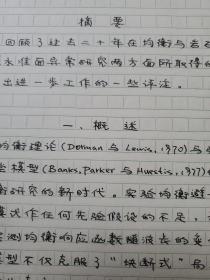 摘 要
回顾了过去二十年在均衡与
永准面异常研究两方面所取得
出进一步工作的一些评注。
一、概 述
均衡理论(Dorman 与 Lewis, 1970)与
模型(Banks, Parker 与 Huestis, 1977)
衡研究的新时代。实验均衡避
模式作任何先验假设的不足,
实测均衡响应函数随波长的变
型不仅克服了"块断式"局